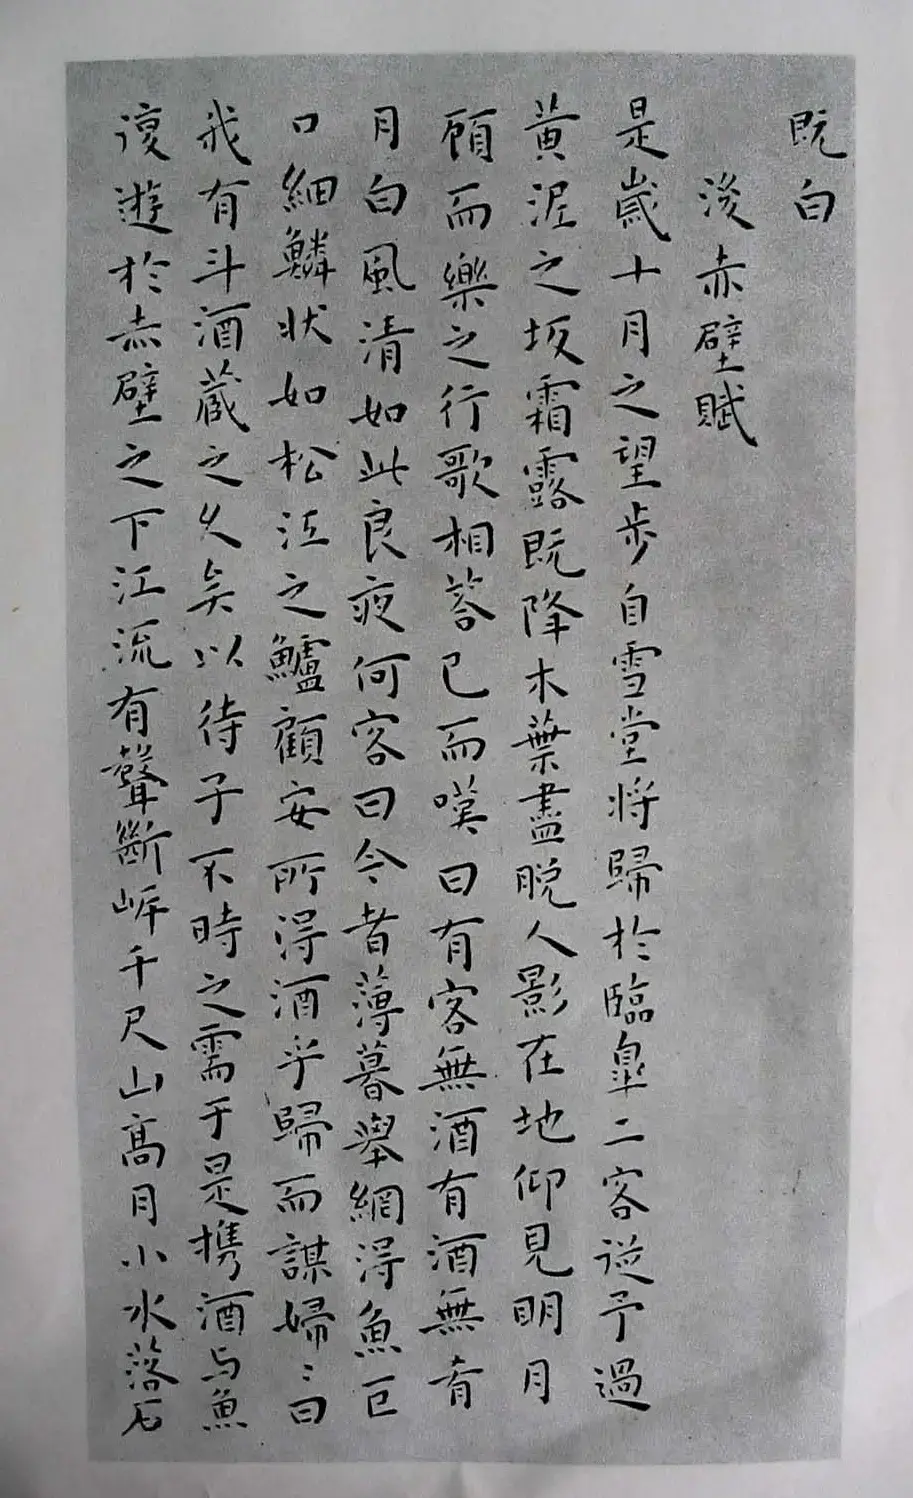 既白
後赤壁賦
是歲十月之望步自雪堂將歸於臨皋二客從予過
黃泥之坂霜露既降木葉盡脫人影在地仰見明月
顧而樂之行歌相荅已而嘆曰有客無酒有酒無肴
月白風清如此良夜何客曰今者薄暮舉網得魚巨
口細鱗狀如松江之鱸顧安所得酒乎歸而謀婦〻曰
我有斗酒藏之久矣以待子不時之需于是携酒与魚
復遊於赤壁之下江流有聲斷岸千尺山高月小水落石